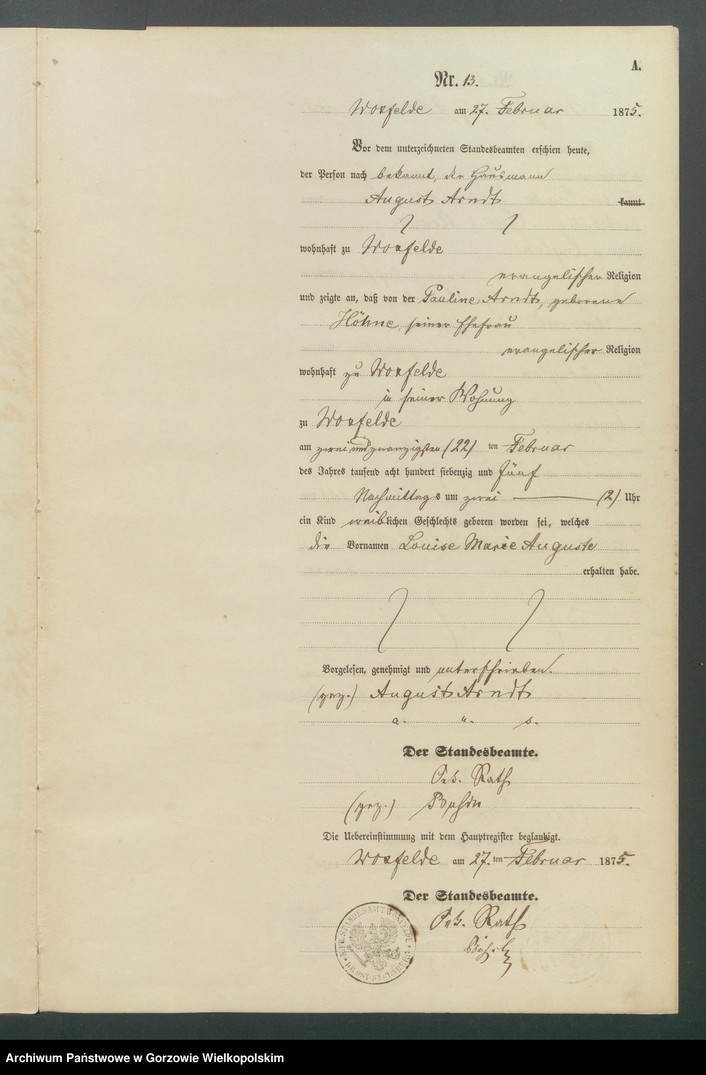 A.
Nr. 13.
Woxfelde am 27. Februar 1875.
Vor dem unterzeichneten Standesbeamten erschien heute,
der Person nach bekannt, der Hausmann
August Arndt kannt
wohnhaft zu Woxfelde
evangelischer Religion
und zeigte an, daß von der Pauline Arndt, geborene
Höhne, seiner Ehefrau
evangelischer Religion
wohnhaft zu Woxfelde
in seiner Wohnung
zu Woxfelde
am zwei und zwanzigsten (22) ten Februar
des Jahres tausend acht hundert siebenzig und fünf
Nachmittags um zwei (2) Uhr
ein Kind weiblichen Geschlechts geboren worden sei, welches
die Vornamen Louise Marie Auguste
erhalten habe.
Vorgelesen, genehmigt und unterschrieben.
(gez.) August Arndt
a. u. s.
Der Standesbeamte.
Rath
(gez.)
Die Uebereinstimmung mit dem Hauptregister beglaubigt.
Woxfelde am 27. ten Februar 1875.
Der Standesbeamte.
Rath
Archiwum Państwowe w Gorzowie Wielkopolskim